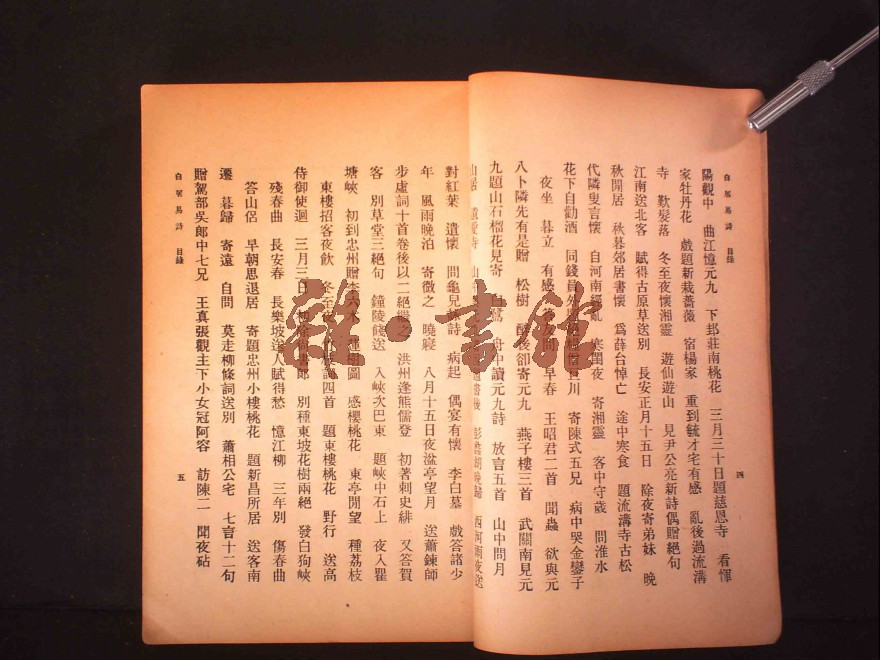 白居易詩 目錄 四
陽觀中 曲江憶元九 下邽莊南桃花 三月三十日題慈恩寺 看惲
家牡丹花 戲題新栽薔薇 宿楊家 重到毓才宅有感 亂後過流溝
寺 歎髮落 冬至夜懷湘靈 遊仙遊山 見尹公亮新詩偶贈絕句
江南送北客 賦得古原草送別 長安正月十五日 除夜寄弟妹 晚
秋閒居 秋暮郊居書懷 爲薛台悼亡 途中寒食 題流溝寺古松
代隣叟言懷 自河南經亂 寒閨夜 寄湘靈 客中守歲 問淮水
花下自勸酒 同錢員外 川 寄陳式五兄 病中哭金鑾子
夜坐 暮立 有感 答友問 早春 王昭君二首 聞蟲 欲與元
八卜隣先有是贈 松樹 醉後却寄元九 燕子樓三首 武關南見元
九題山石榴花見寄 白鷺 舟中讀元九詩 放言五首 山中問月
山居 遺愛寺 山 彭蠡湖晚歸 西河雨夜送
對紅葉 遣懷 問龜兒 詩 病起 偶宴有懷 李白墓 戲答諸少
年 風雨晚泊 寄微之 曉寢 八月十五日夜湓亭望月 送蕭鍊師
步虛詞十首卷後以二絕繼之 洪州逢熊孺登 初著刺史緋 又答賀
客 別草堂三絕句 鐘陵餞送 入峽次巴東 題峽中石上 夜入瞿
塘峽 初到忠州贈李六 木蓮樹圖 感櫻桃花 東亭閒望 種荔枝
東樓招客夜飲 冬至夜 竹枝詞四首 題東樓桃花 野行 送高
侍御使迴 三月三日 尚書郎 別種東坡花樹兩絕 發白狗峽
殘春曲 長安春 長樂坡送人賦得愁 憶江柳 三年別 傷春曲
答山侶 早朝思退居 寄題忠州小樓桃花 題新昌所居 送客南
遷 暮歸 寄遠 自問 莫走柳條詞送別 蕭相公宅 七言十二句
贈駕部吳郎中七兄 王真張觀主下小女冠阿容 訪陳二 聞夜砧
白居易詩 目錄 五
雜·書鈔